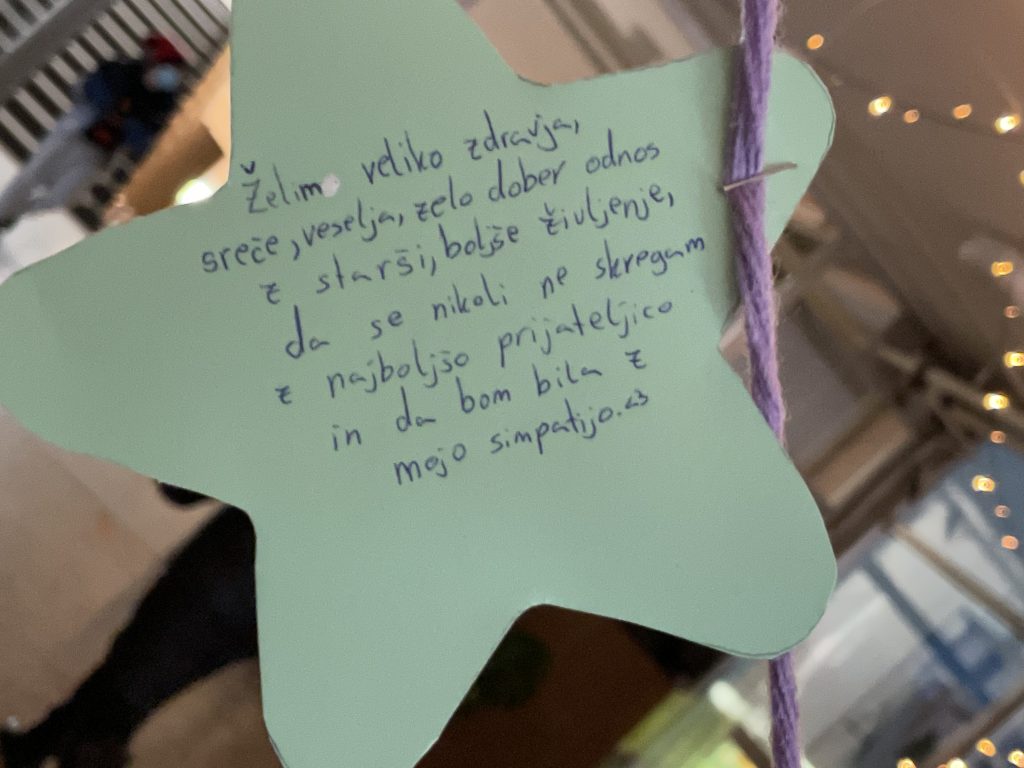 Želim veliko zdravja,
sreče, veselja, zelo dober odnos
z starši, boljše življenje,
da se nikoli ne skregam
z najboljšo prijateljico
in da bom bila z
mojo simpatijo. <3